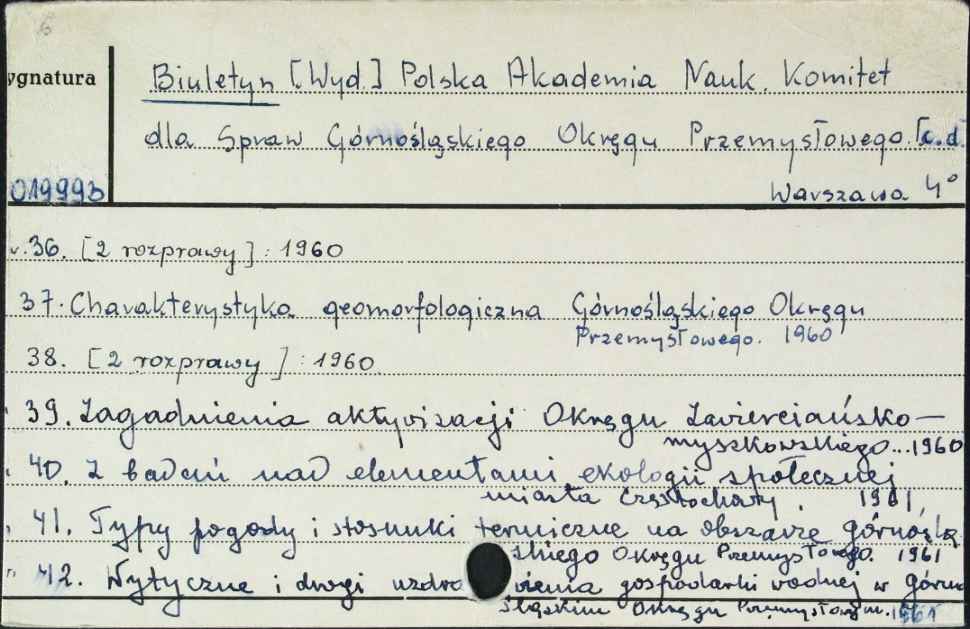 6
ygnatura
Biuletyn [Wyd.] Polska Akademia Nauk. Komitet
dla Spraw Górnośląskiego Okręgu Przemysłowego. [c.d.
019993
Warszawa 4°
v.36. [2 rozprawy] : 1960
37. Charakterystyka geomorfologiczna Górnośląskiego Okręgu
Przemysłowego. 1960
38. [2 rozprawy] : 1960
39. Zagadnienia aktywizacji Okręgu Zawierciańsko-
myszkowskiego...1960
40. Z badań nad elementami ekologii społecznej
miasta Częstochowy. 1961
41. Typy pogody i stosunki termiczne na obszarze górnoślą
skiego Okręgu Przemysłowego. 1961
42. Wytyczne i drogi uzdro wienia gospodarki wodnej w Górno
śląskim Okręgu Przemysłowym. 1961